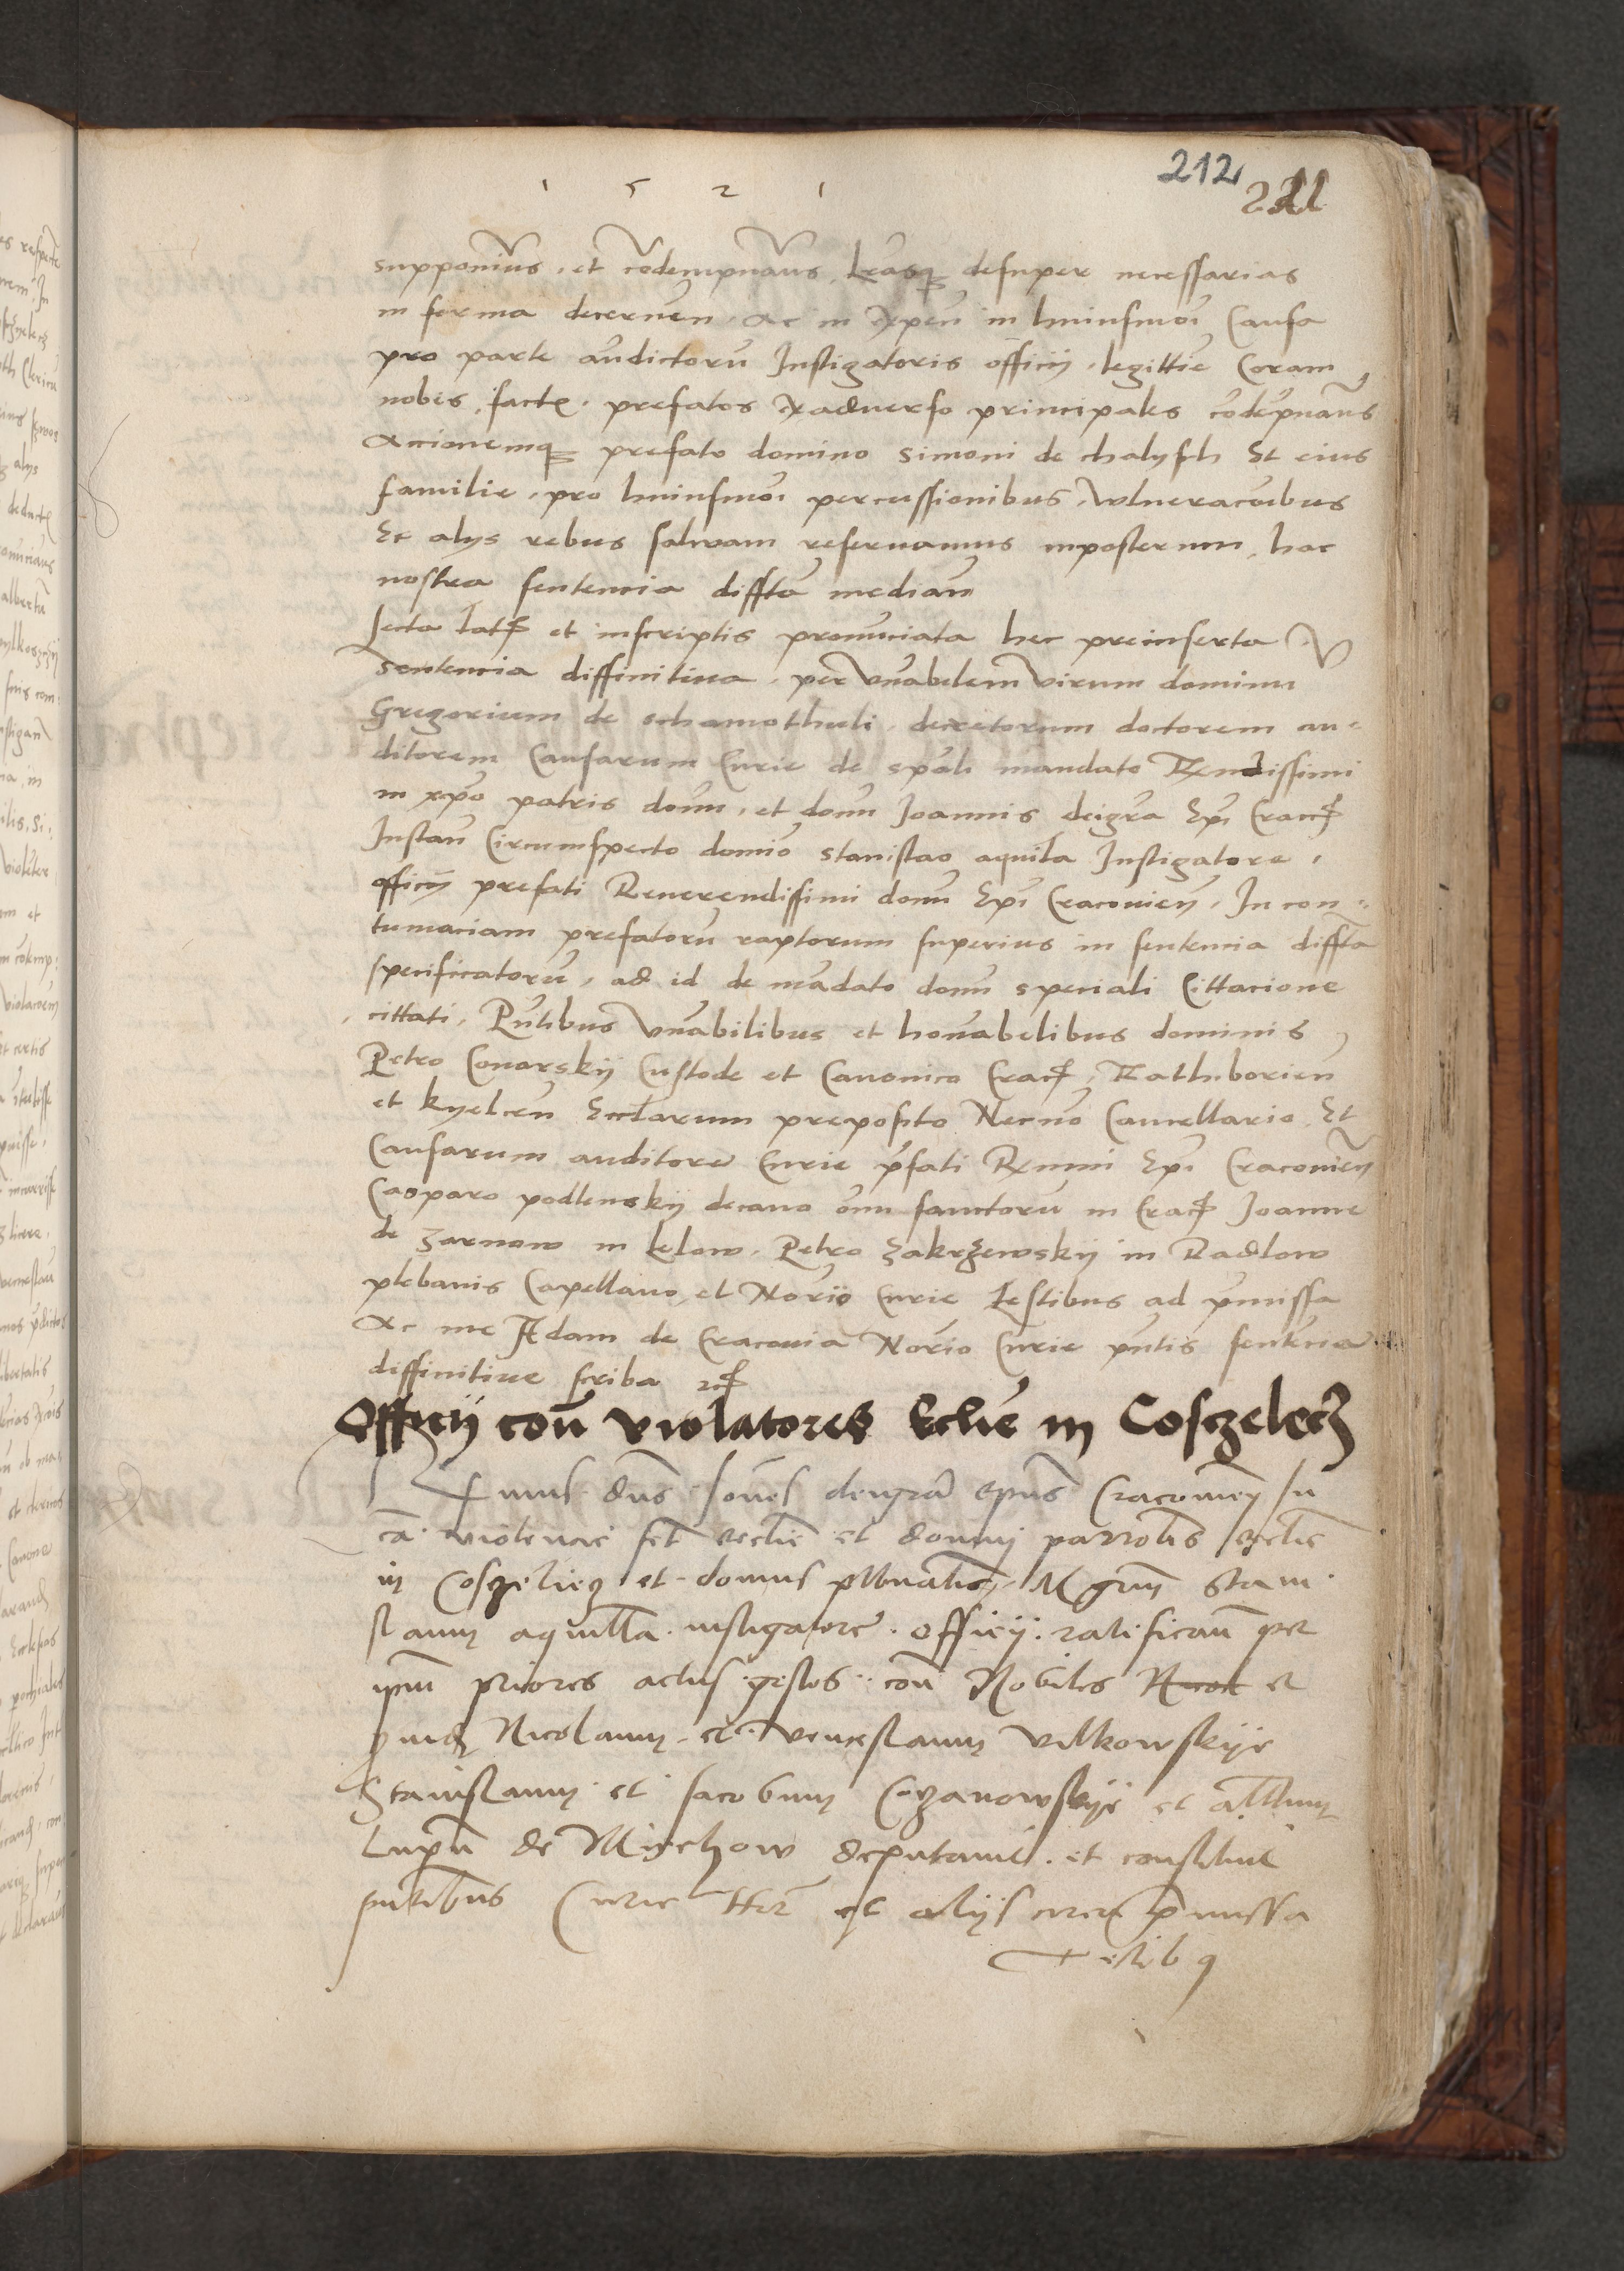 1 5 2 1
212
211
supponimus, et condempnamus, lrasq desuper necessarias
in forma decernen. Ac in expen in huiusmoi Causa
pro parte andictoru Instigatoris officij, legittie Coram
nobis, facte, prefatos ex aduerso principales codepnamus
Accionemq prefato domino Simoni de chalysch Et eius
familie, pro huiusmoi percussionibus, vulneracoibus
Et alys rebus saluam reseruamus inposterum, hac
nostra sentencia diffita median
Lecta lata et inscriptis pronunciata hec preinserta
Sentencia diffinitiua, per venabilem virum dominu
Gregorium de schamothuli, decretorum doctorem au-
ditorem Causarum Curie de spali mandato Rendissimi
in xpo patris domi, et domi Joannis deigra Epi Cracc
Instan Circumspecto domio Stanislao aquila Instigatore,
officij prefati Reuerendissimi domi Epi Cracouien, In con-
tumaciam prefatoru raptorum superius in sentencia diffita
specificatoru, ad id de madato domi speciali Cittacione
cittati, Pntibus venabilibus et honabelibus dominis
Petro Conarskij Custode et Canonico Crac, Rathiborien
et kyelcen Ecclarum preposito Necno Cancellario Et
Causarum auditore Curie pfati Rxmi Epi Cracouien
Casparo podlenskij decano omi sanctoru in Crac Joanne
de Zarnow in Lelow, Petro Zakrzewskij in Radlow
plebanis Capellano et Norio Curie Testibus ad pmissa
Ac me Adam de Cracouia Norio Curie pntis sentencie
diffinitiue scriba
Officij con violatores Eclie in Cosczelecz
Rxmus dns Joanes deigra epus Cracouien In
ca violencie fct ecclie et domui parrolis ecclie
in Cosczeliecz et domus plbnalis, Mgrum Stani
slaum aquilla instigatore officij ratifican per
ipum priores actus gestos con Nobiles Nicol et
quid Nicolaum et venceslaum vilkowskije
Stanislaum et Jacobum Czanowskije et albtum
Lupu de Miechow deputauit et constituit
pntibus Curie et alijs circa pmissa
testibq